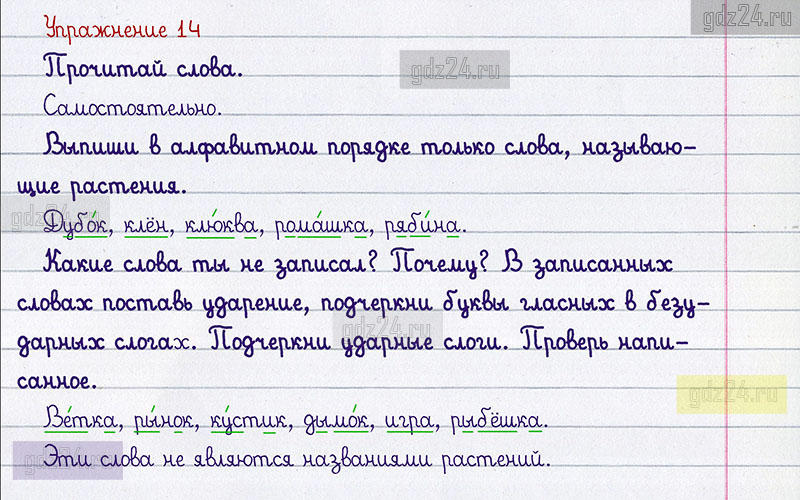 gdz24.ru
Упражнение 14
Прочитай слова.
gdz24.ru
Самостоятельно.
Выпиши в алфавитном порядке только слова, называю-
щие растения.
gdz24.ru
Дубо́к, клён, клю́ква, рома́шка, ряби́на.
Какие слова ты не записал? Почему? В записанных
словах поставь ударение, подчеркни буквы гласных в безу-
gdz24.ru
дарных слогах. Подчеркни ударные слоги. Проверь напи-
санное.
gdz24.ru
Ве́тка, ры́нок, ку́стик, дымо́к, игра, рыбёшка.
gdz24.ru
Эти слова не являются названиями растений.